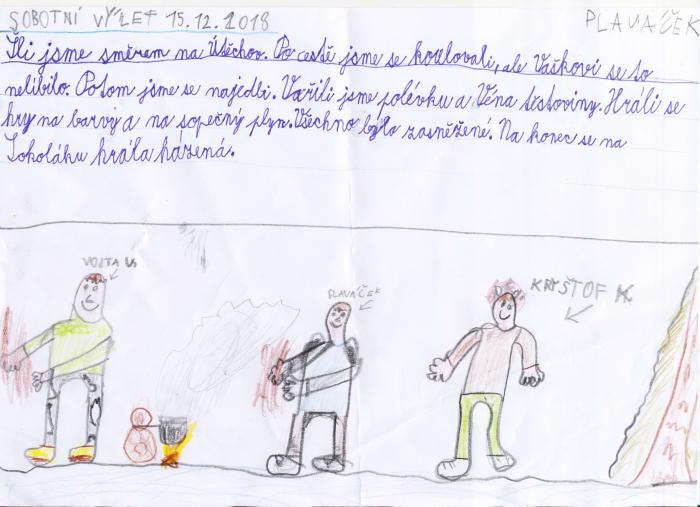 SOBOTNÍ VÝLET 15.12.2018
PLAVAČEK
Šli jsme směrem na Útěchov. Po cestě jsme se koulovali, ale Vaškovi se to
nelíbilo. Potom jsme se najedli. Vařili jsme polévku a Véna těstoviny. Hráli se
hry na barvy a na sopečný plyn. Všechno bylo zasněžené. Na konec se na
Sokoláku hrála házená.
VOJTA U.
PLAVAČEK
KRYŠTOF K.